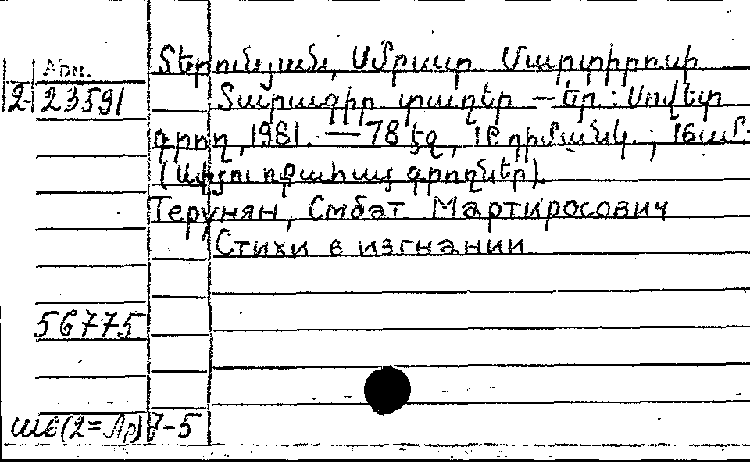 Арм.
2- 23591
Տերունյան, Սմբատ Մարտիրոսի
Տարագիր տաղեր – Եր.: Սովետ.
գրող, 1981. — 78 էջ, 1 դիմանկ.; 16սմ.
(Սփյուռքահայ գրողներ).
Терунян, Смбат Мартиросович
Стихи в изгнании
56775
7-5